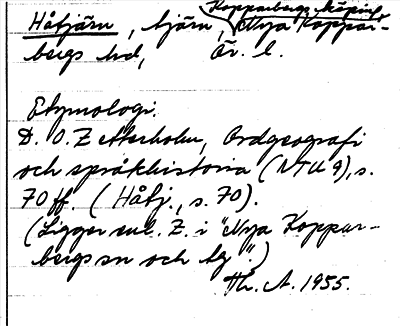 Kopparbergs köping,
Håtjärn, tjärn, Nya Koppar-
bergs hd, Ör. l.
Etymologi.
D. O. Zetterholm, Ordgeografi
och språkhistoria (NTU 9), s.
70 ff. (Håtj., s. 70).
(Ligger enl. Z. i "Nya Koppar-
bergs sn och bg".)
Th. A. 1955.